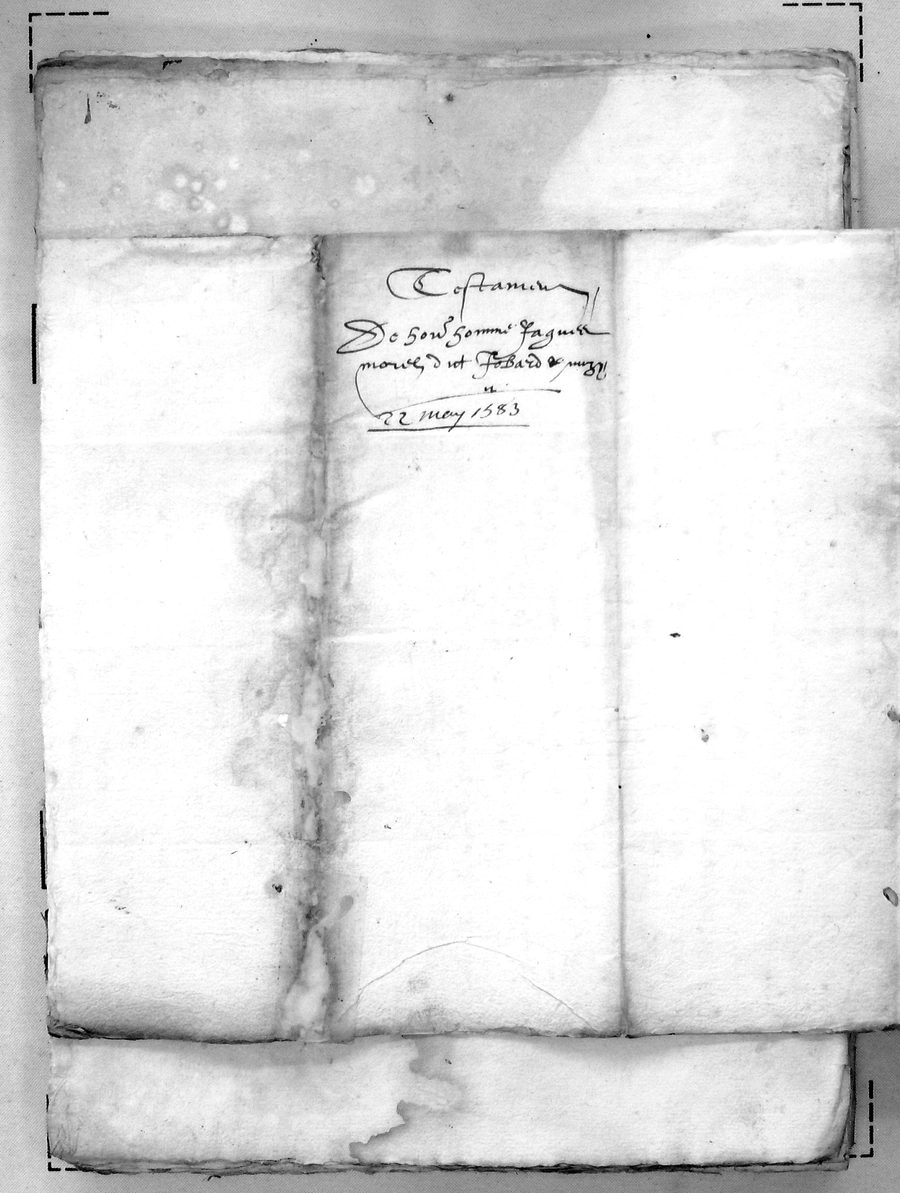 Testament
De hon^e homme Jaques
morel dict Jobard de
22 may 1583